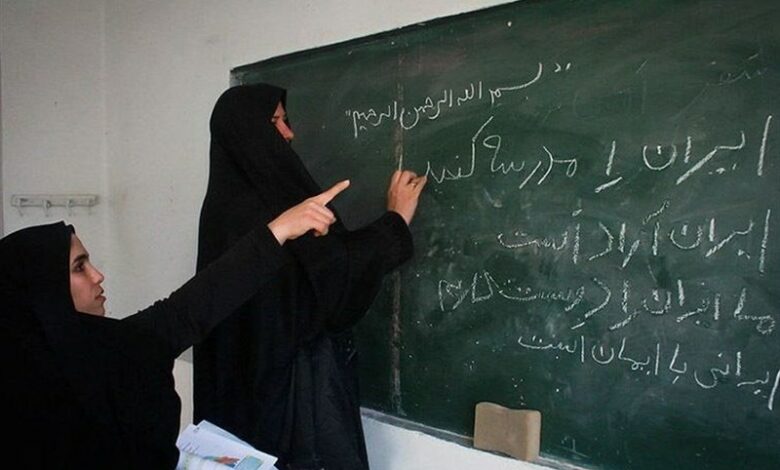 "بسم الله الرحمن الرحیم"
ایران را مدرسه کنید
ایران آزاد است
ما ایران را دوست داریم
ایرانی با ایمان است